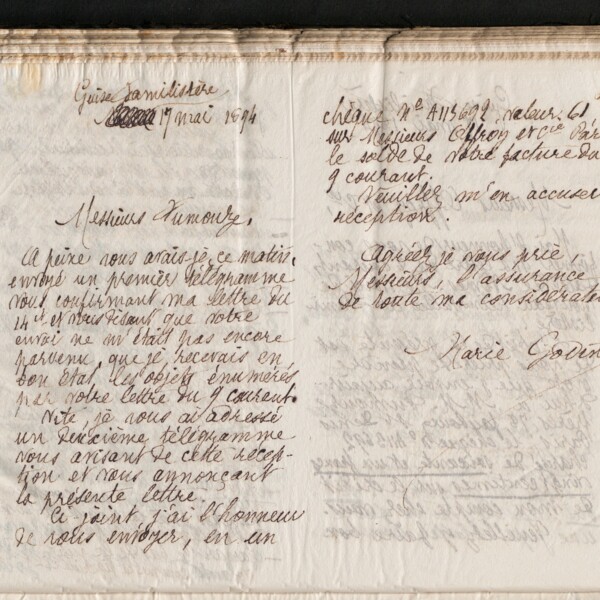 Guise Familistère
17 mai 1894
Messieurs Dumouze,
A peine vous avais-je, ce matin,
envoyé un premier télégramme
vous confirmant ma lettre du
14 ct et vous disant que votre
envoi ne m'était pas encore
parvenu, que je recevais en
bon état, les objets énumérés
par votre lettre du 9 courant.
Vite, je vous ai adressé
un deuxième télégramme
vous avisant de cette récep-
tion et vous annonçant
la présente lettre.
Ci joint, j'ai l'honneur
de vous envoyer, en un
chèque No A115692, valeur 61
sur Messieurs et Cie
le solde de votre facture du
9 courant.
Veuillez m'en accuser
réception.
Agréez je vous prie,
Messieurs, l'assurance
de toute ma considérati
Marie Godin